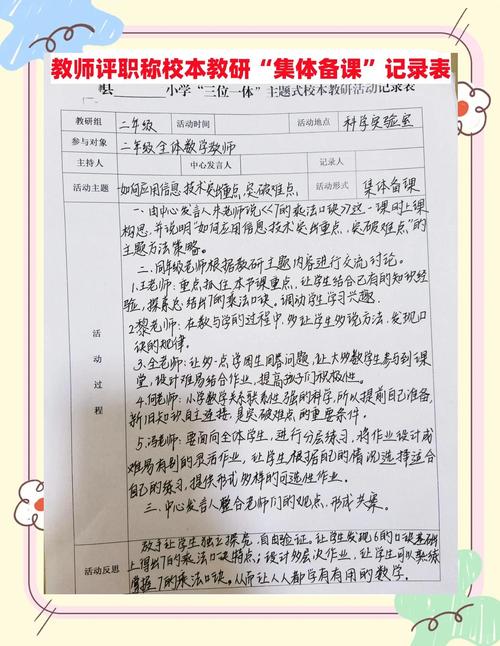 教师评职称校本教研“集体备课”记录表
县 小学“三位一体”主题式校本教研活动记录表
教研组 二年级 活动时间 活动地点 科学实验室
参与对象 二年级全体数学教师
主持人 中心发言人 记录人
活动主题 如何应用信息技术突出重点,突破难点 活动形式 集体备课
活动过程
一.由中心发言人朱老师说《7的乘法口诀》这一课时上课
构思,并说明“如何应用信息技术突出重点,突破难点”的
主题方法策略。
二.同年级老师根据教研主题内容进行交流讨论。
1.王老师:重点抓住本节课重点,让学生结合已有的知识经
验,探索总结出7的乘法口诀。调动学生学习兴趣.
2.黎老师:在教与学的过程中,多让学生多说方法,发现口
诀的规律.
3.全老师:让多一点学困生回答问题,让大多数学生参与到课
堂,设计难易结合作业,提高孩子们积极性。
4.何老师:小学数学关联系性强的科学,所以提前自己准备,
新旧知识自主连接,是突破难点的重要条件.
5.冯老师:要面向全体学生,进行分层练习,将作业设计成
难易有别的灵活作业,让学生根据自己的情况选择适合
自己的练习,提供形式多样的可选性作业.
三.中心发言人整合老师们的观点,形成共案.
活动反思
放手让学生独立探究,自由验证。让学生发现6的口诀基础
上得出7的乘法口诀特点;设计多层次作业,让学生可以熟练
掌握7的乘法口诀。从而让人人都学有有用的数学.